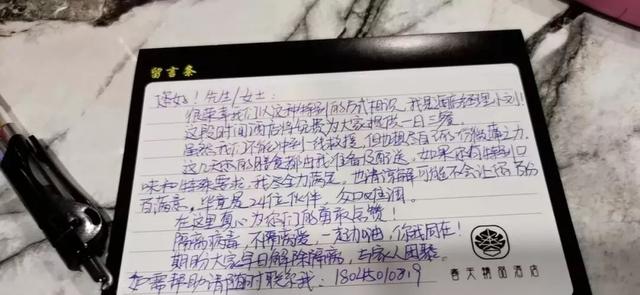 留言条
您好！先生/女士：
很荣幸我们以这种特别的方式相识，我是酒店经理小刘！
这段时间酒店将免费为大家提供一日三餐。
虽然我们不能冲到一线救援，但也想尽自己的绵薄之力。
这几天你的膳食都由我准备及配送，如果你有特别口
味和特殊要求，我尽全力满足，也请谅解可能不会让您百分
百满意，毕竟是24位伙伴，众口难调。
在这里真心为你们的勇敢点赞！
隔离病毒，不隔离爱，一起加油，你我同在！
期盼大家早日解除隔离，与家人团聚。
如需帮助请随时联系我：18045010319
春天精菌酒店